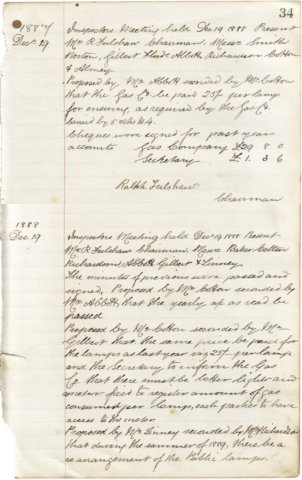 34
1887
Dec 19
Inspectors Meeting held Dec 19 1888 Present
Mr R Fulshaw Chairman. Messrs Smith
Norton, Gilbert Abbott Richardson Cotton
& Almey.
Proposed by Mr Abbott seconded by Mr Cotton
that the Gas Co be paid 25/- per lamp
for ensuing, as required by the Gas Co.
Carried by 5 votes to 4.
Cheques were signed for past year
accounts Gas Company £29 8 0
Secretary £1. 3 6
Ralph Fulshaw
Chairman
1888
Dec. 19
Inspectors Meeting held Dec 19 1888 Present
Mr R Fulshaw Chairman. Messrs Baker Cotton
Richardson, Abbott Gilbert & Linney.
The minutes of previous were passed and
signed. Proposed by Mr Cotton seconded by
Mr Abbott, that the yearly a/c as read be
passed
Proposed by Mr Cotton seconded by Mr
Gilbert that the same price be paid for
the lamps as last year viz 25/- per lamp
and the Secretary to inform the Gas
Co. that there must be better lights and
a meter fixed to register amount of gas
consumed per lamp, each parties to have
access to the meter.
Proposed by Mr Linney seconded by Mr Richardson
that during the summer of 1889, there be a
re arrangement of the Public lamps.